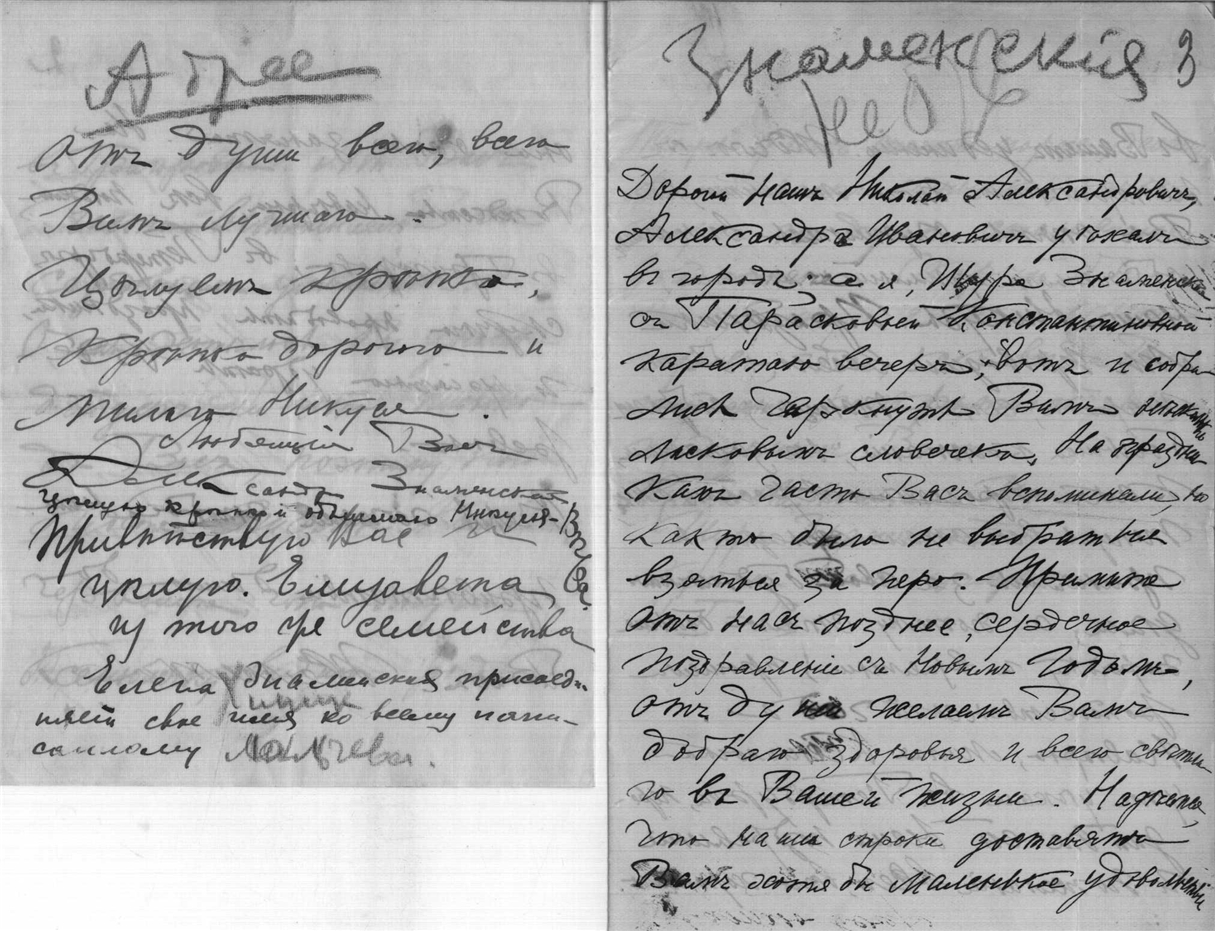 Адрес
отъ души всего, всего
Вамъ лучшаго.
Цѣлуемъ крѣпко,
крѣпко дорогого и
милаго Никушу.
Любящій Васъ
Знаменскій
цѣлую крѣпко и обнимаю
Привѣтствую Вас
цѣлую. Елизавета
из того же семейства
Елена Знаменская присоеди-
няетъ свое имя ко всему напи-
санному
Знаменскія 3
Дорогой нашъ Николай Александровичъ,
Александра Ивановичъ уѣхали
въ городъ, а я, Шура Знаменск
съ Парасковьей Константиновной
каратаю вечеръ, вотъ и собра
лись черкнуть Вамъ
ласковымъ словечком. На праздни
кахъ часто Васъ вспоминали, но
какъ то было не выбраться
взяться за перо. Примите
отъ насъ позднее, сердечное
поздравленіе съ Новымъ Годомъ,
отъ ду желаемъ Вамъ
добраго здоровья и всего свѣтла
го въ Вашей жизни. Надѣемся,
что наши строки доставятъ
Вамъ хотя бы маленькое удовольствіе